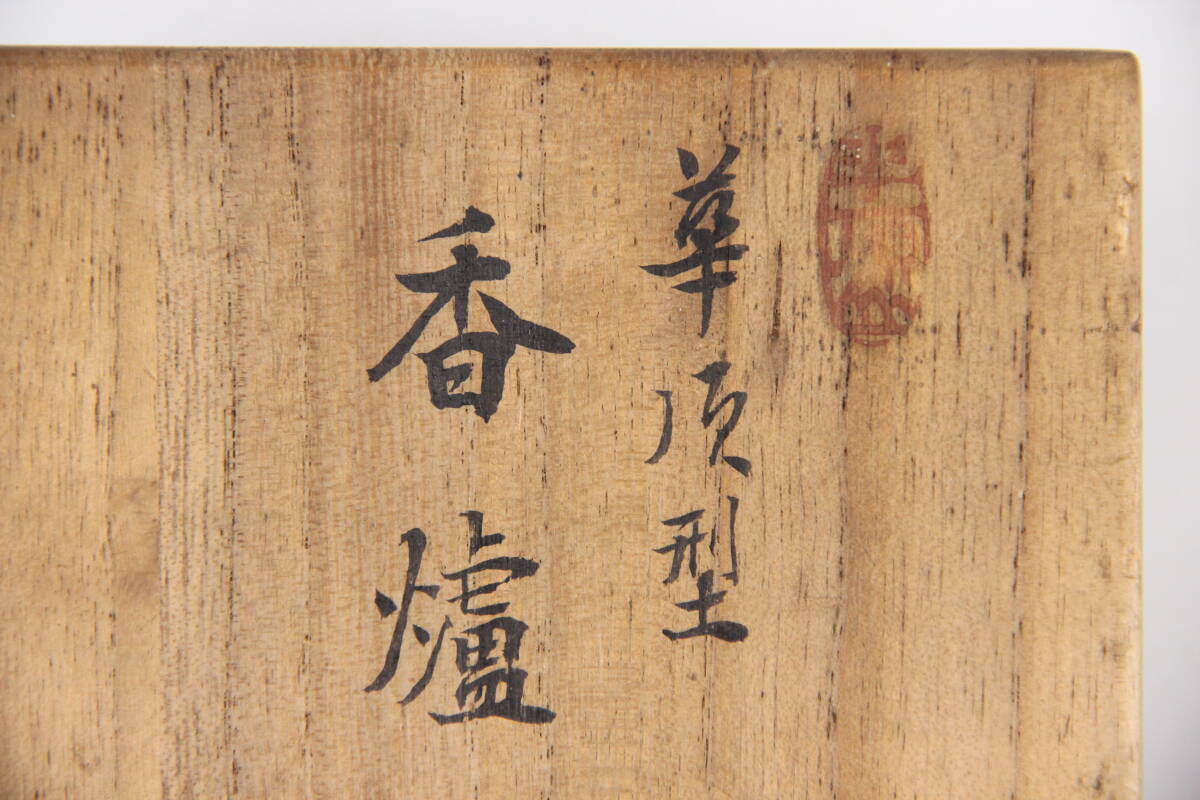 華頂型
香爐